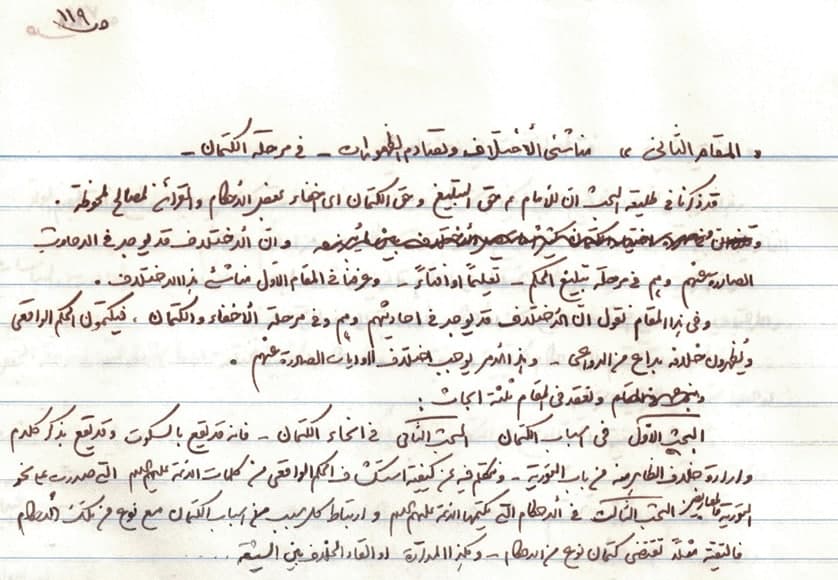 ص ١١٩
• المقام الثاني „ مناشئ الأختلاف وتصادم الظهورات - في مرحلة الكتمان -
قد ذكرنا في طليعة البحث ان للأمام ع حق التبليغ وحق الكتمان اي اخفاء بعض الأحكام والقرائن لمصالح ملحوظة .
وان الأختلاف قد يوجد في الاحاديث
الصادرة عنهم وهم في مرحلة تبليغ الحكم - تعليماً او افتاءً - وعرضنا في المقام الأول مناشئ هذا الاختلاف .
وفي هذا المقام نقول ان الأختلاف قد يوجد في احاديثهم وهم في مرحلة الأخفاء والكتمان ، فيكتمون الحكم الواقعي
ويُظهرون خلافه بداع من الدواعي - وهذا الأمر يوجب اختلاف الروايات الصادرة عنهم .
ونعقد في المقام ثلثة ابحاث :
البحث الاول في اسباب الكتمان البحث الثاني في انحاء الكتمان - فانه قد يقع بالسكوت وقد يقع بذكر كلام
وارادة خلاف الظاهر منه من باب التورية - ونتكلم فيه عن كيفية استكشاف الحكم الواقعي من كلمات الائمة عليهم السلام التي صدرت على نحو
التورية البحث الثالث في الأحكام التي يكتمها الائمة عليهم السلام وارتباط كل سبب من اسباب الكتمان مع نوع من تلك الأحكام
فالتقية مثلاً تقتضي كتمان نوع من الاحكام - وهكذا المداراة او القاء الخلاف بين الشيعة ....